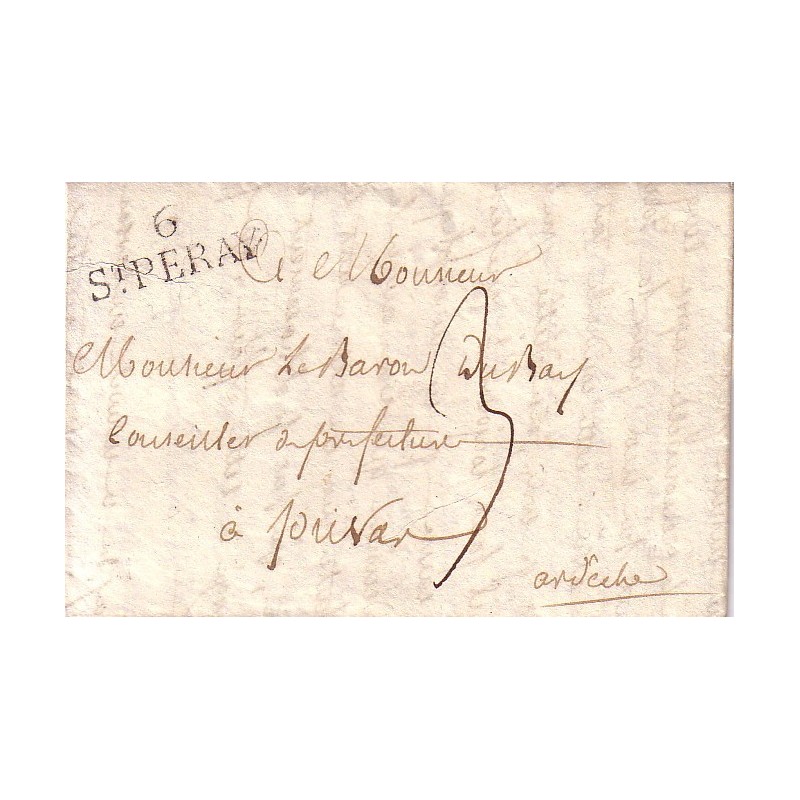 6
ST. PERAY
A Monsieur
Monsieur Le Baron DuBay
Conseiller de prefecture
à privas
3
ardeche